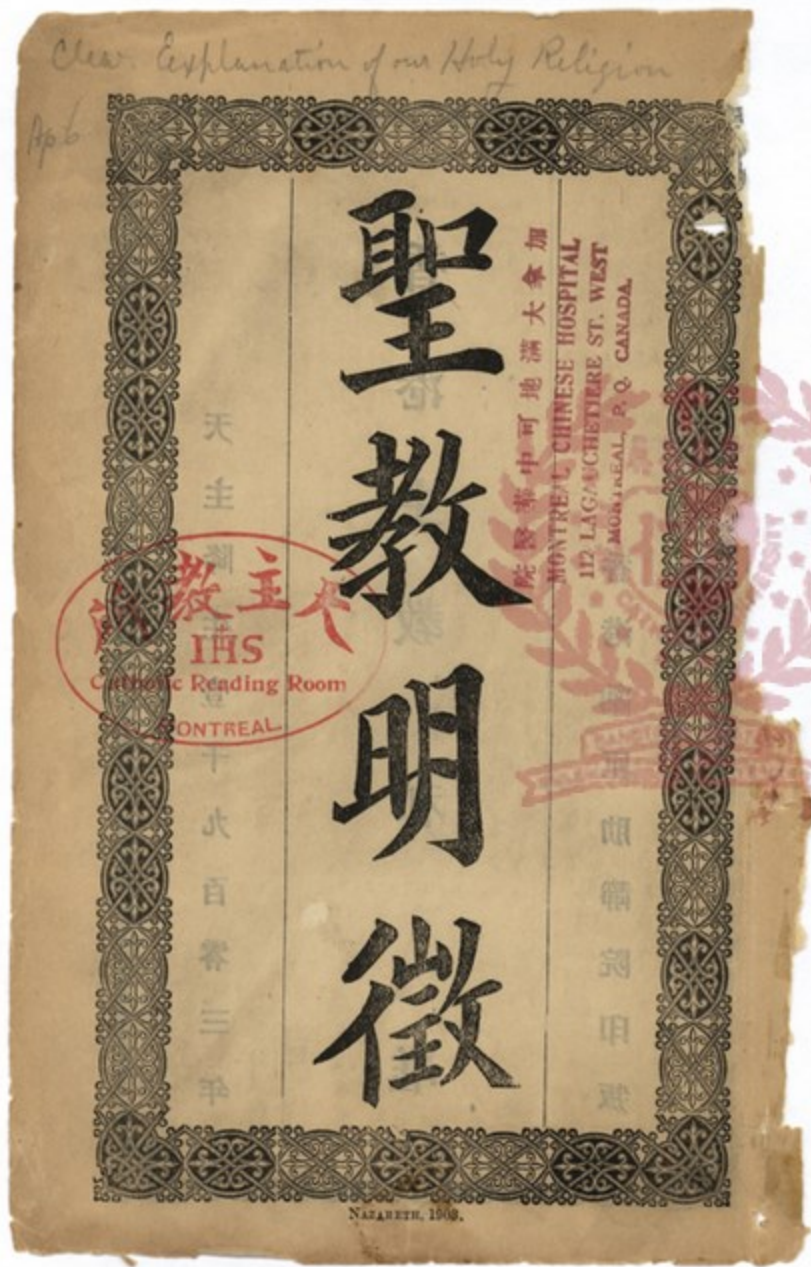 Clear Explanation of our Holy Religion
Ap 6
加拿大滿地可中華醫院
MONTREAL CHINESE HOSPITAL
112 LAGAUCHETIERE ST. WEST
MONTREAL, P. Q. CANADA.
聖教明徵
天主降生壹千九百零三年
天主教
IHS
Catholic Reading Room
MONTREAL
NAZARETH, 1903.